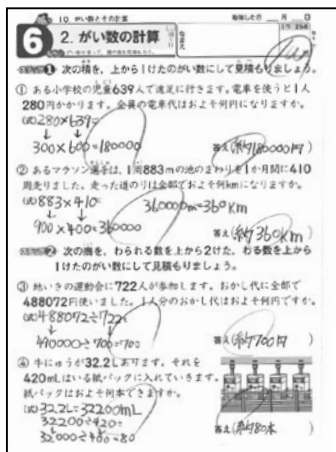 10. がい数とその計算
勉強した日 月 日
6
2. がい数の計算
① 次の積を、上から1けたのがい数にして見積もりましょう。
① ある小学校の児童639人で遠足に行きます。電車を使うと1人
280円かかります。全員の電車代はおよそ何円になりますか。
(式)280×639=
300×600=180000
答え(約180000円)
② あるマラソン選手は、1周883mの池のまわりを1か月間に410
周走りました。走った道のりは全部でおよそ何kmになりますか。
(式)883×410=
360000m=360km
900×400=360000
答え(約360km)
② 次の商を、わられる数を上から2けた、わる数を上から
1けたのがい数にして見積もりましょう。
③ 地いきの運動会に722人が参加します。おかし代に全部で
488072円使いました。1人分のおかし代はおよそ何円ですか。
(式)488072÷722=
490000÷700=700
答え(約700円)
④ 牛にゅうが32.2Lあります。それを
420mLはいる紙パックに入れていきます。
紙パックはおよそ何本できますか。
(式)32.2L=32200mL
32200÷420=
32000÷400=80
答え(約80本)